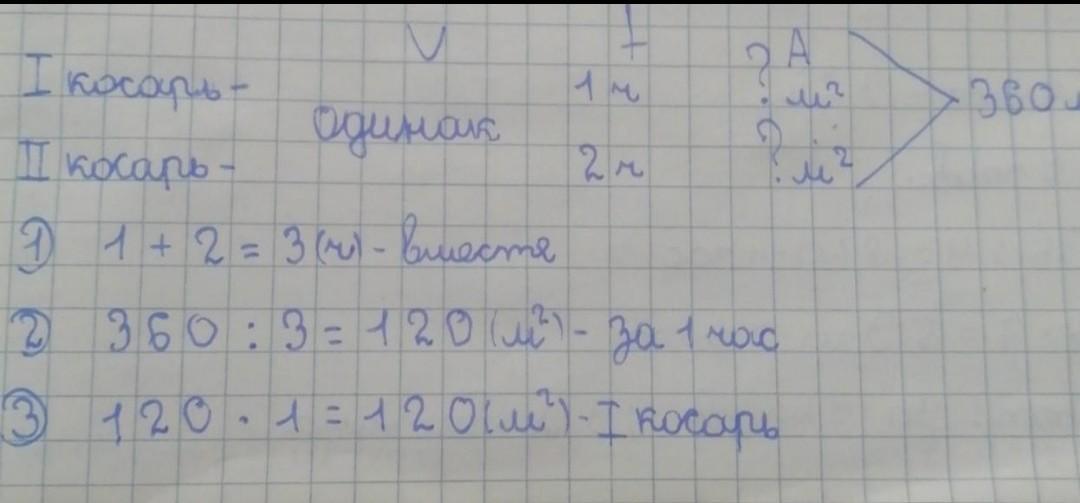 V t A
I косарь - 1 ч ? м²
одинак 360 м
II косарь - 2 ч ? м²
① 1 + 2 = 3 (ч) - вместе
② 360 : 3 = 120 (м²) - за 1 час
③ 120 · 1 = 120 (м²) - I косарь